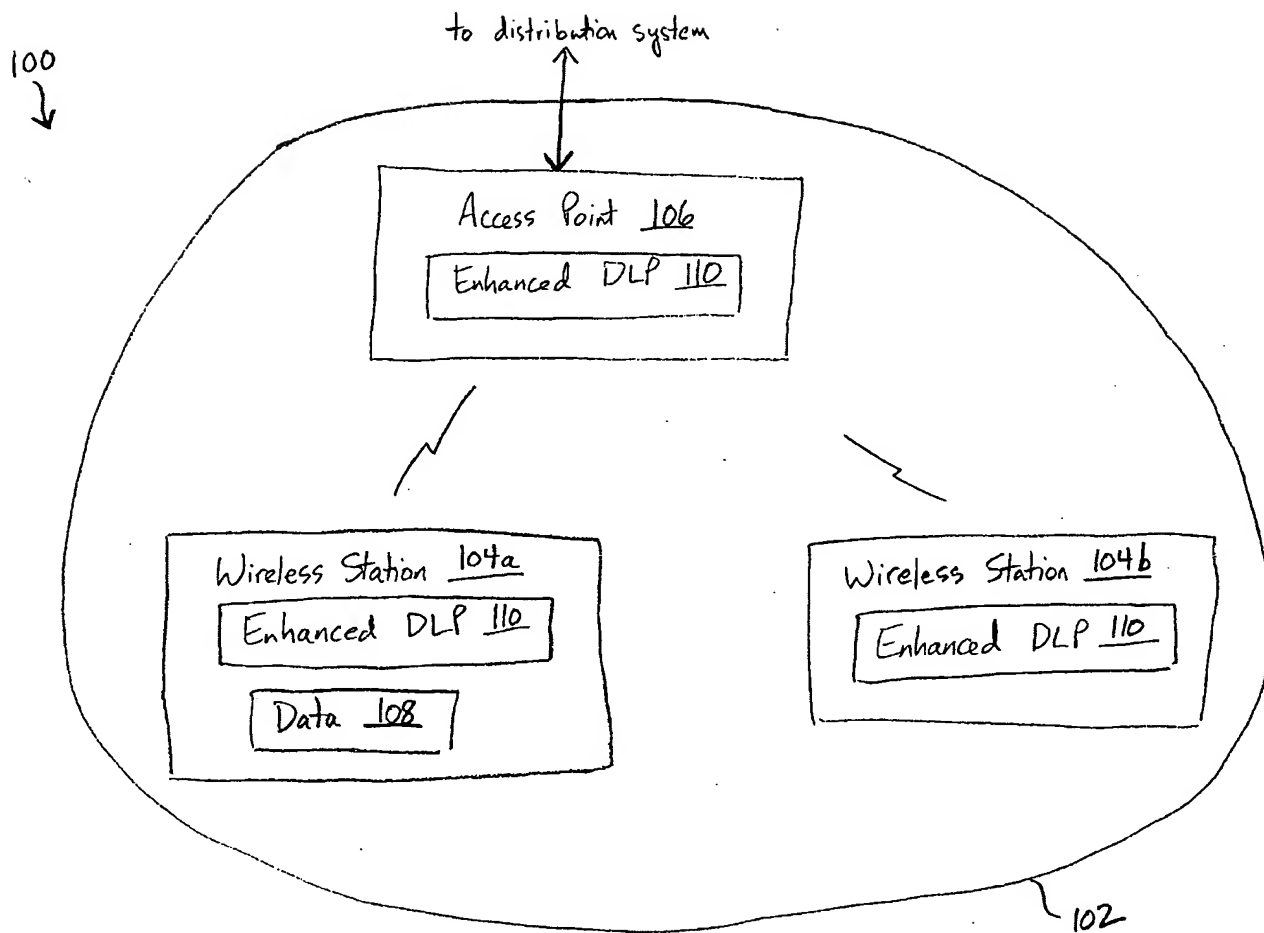 to distribution system
100
Access Point 106
Enhanced DLP 110
Wireless Station 104a
Enhanced DLP 110
Data 108
Wireless Station 104b
Enhanced DLP 110
102